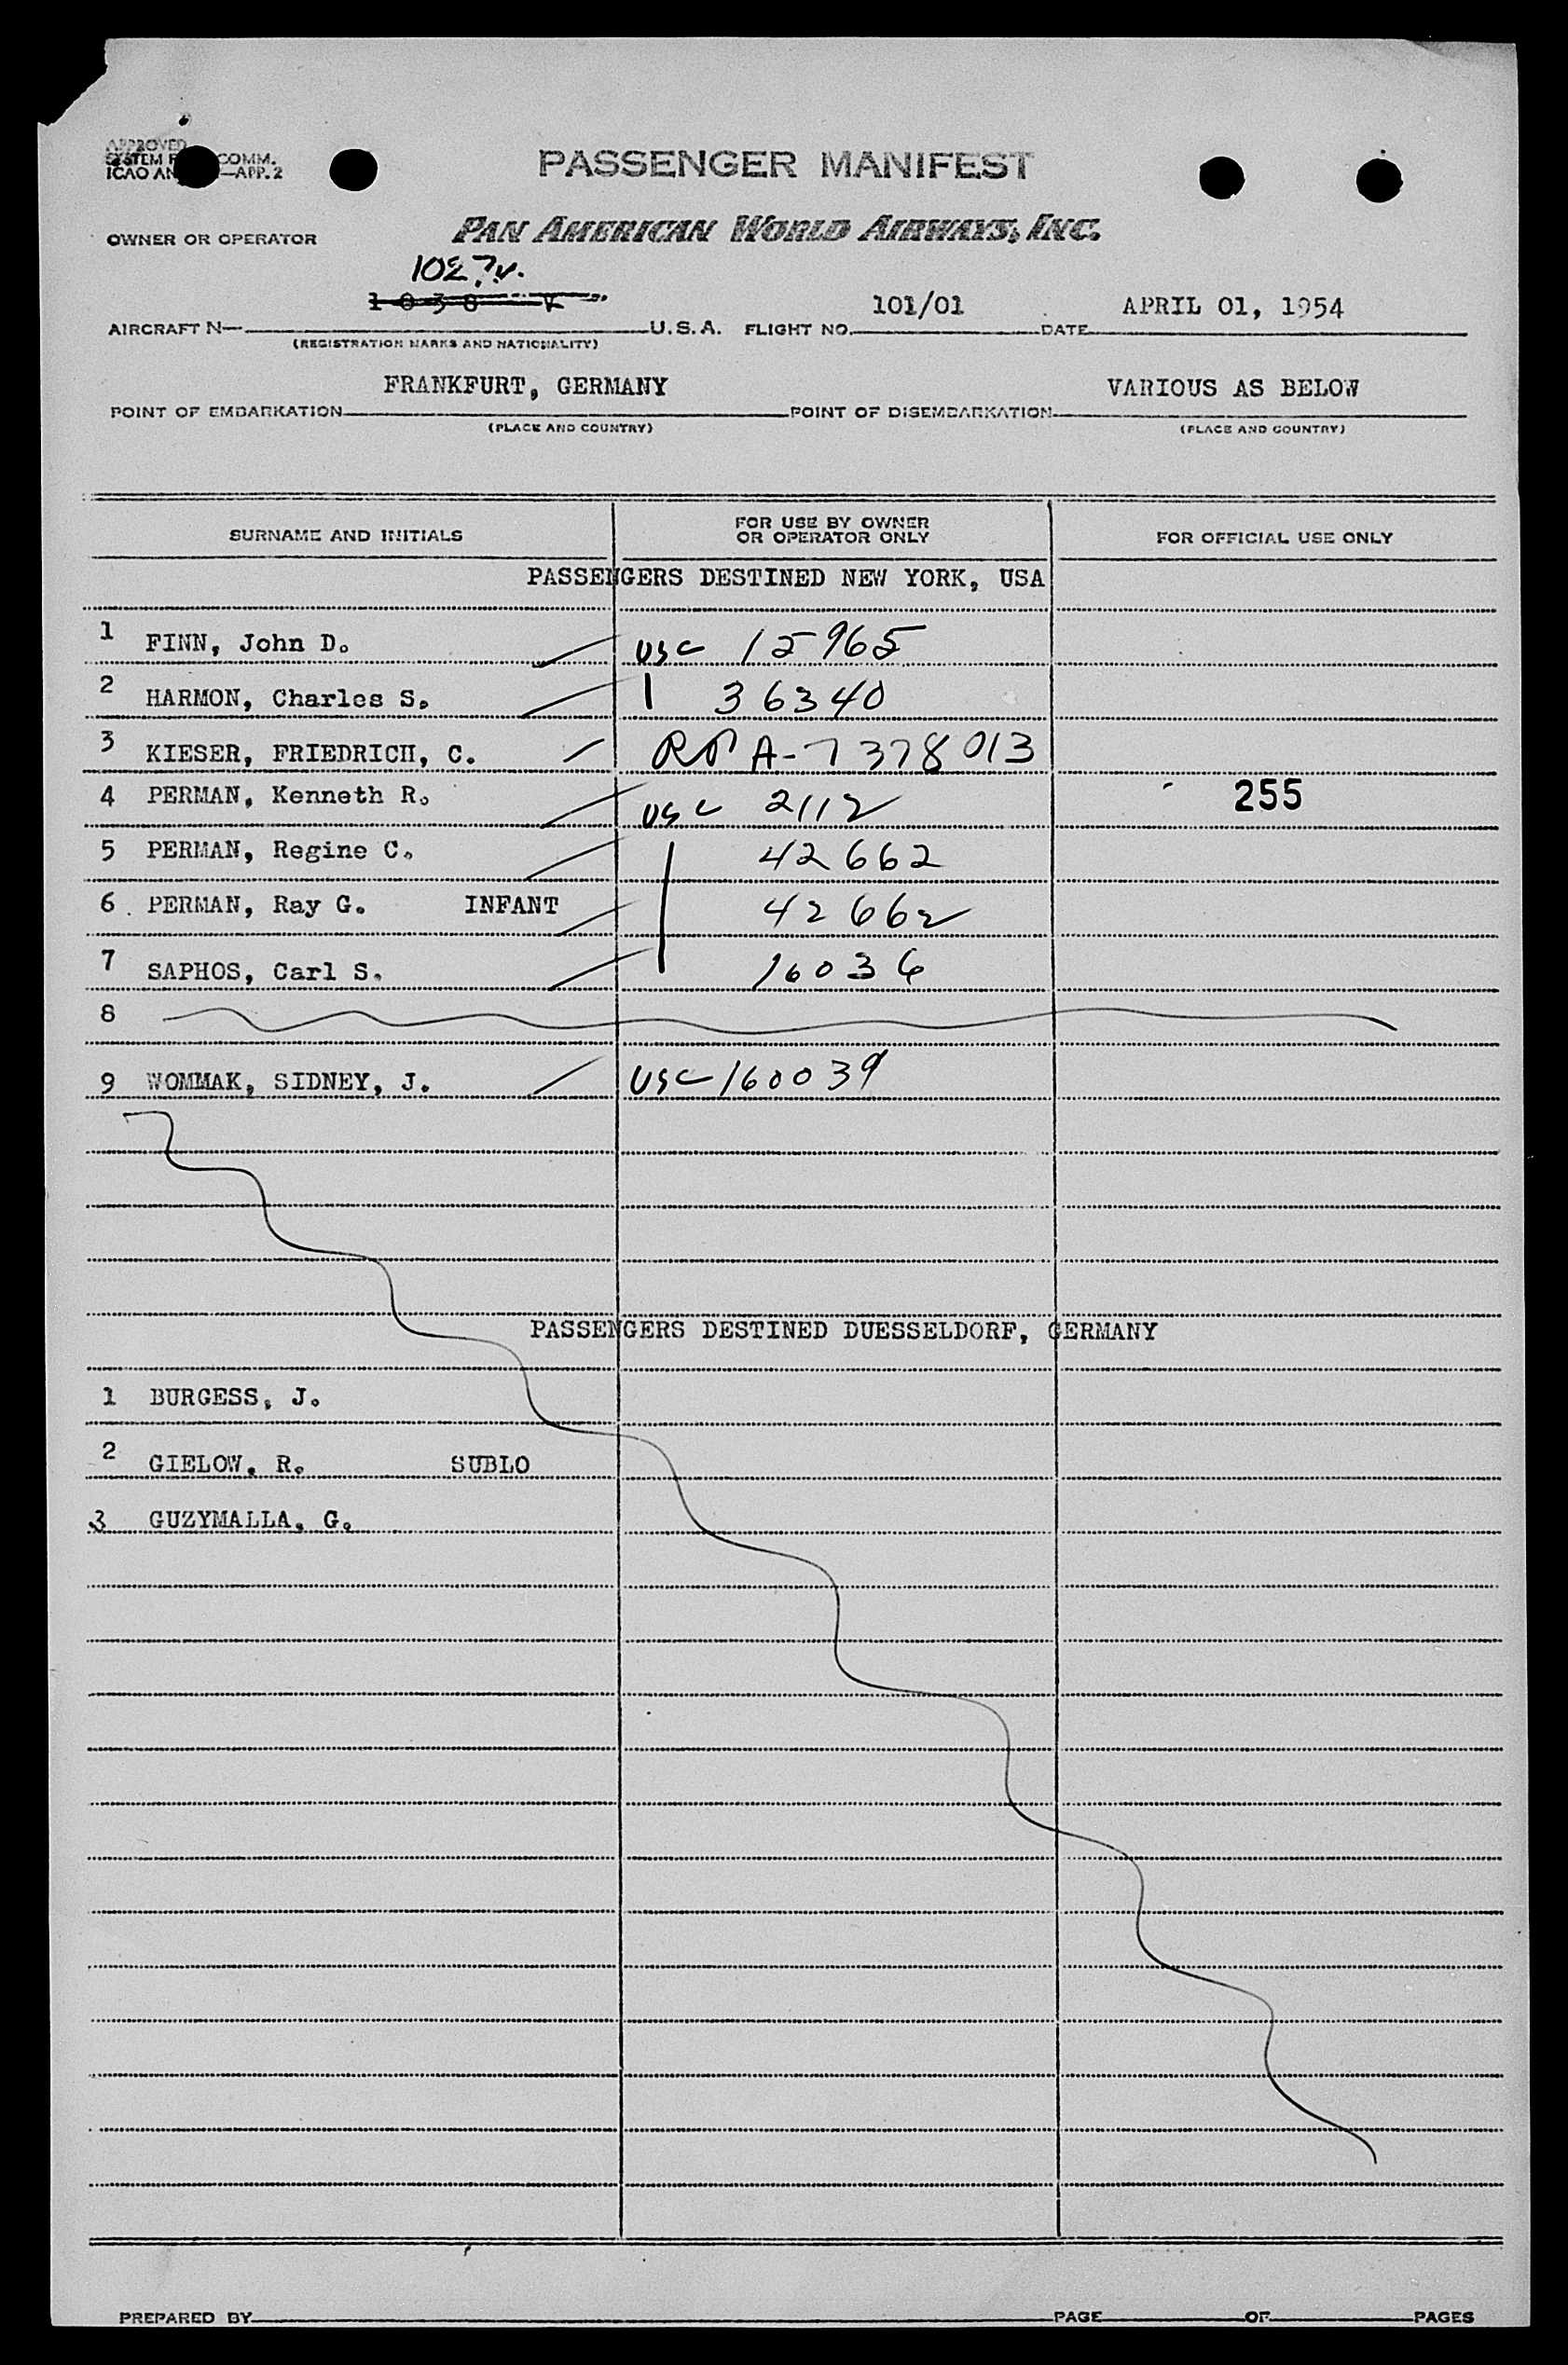 APPROVED
SYSTEM COMM.
ICAO AN —APP. 2
PASSENGER MANIFEST
OWNER OR OPERATOR PAN AMERICAN WORLD AIRWAYS, INC.
1027V.
1038 V
AIRCRAFT N— U.S.A. FLIGHT NO. 101/01 DATE APRIL 01, 1954
(REGISTRATION MARKS AND NATIONALITY)
POINT OF EMBARKATION FRANKFURT, GERMANY POINT OF DISEMBARKATION VARIOUS AS BELOW
(PLACE AND COUNTRY) (PLACE AND COUNTRY)
SURNAME AND INITIALS FOR USE BY OWNER OR OPERATOR ONLY FOR OFFICIAL USE ONLY
PASSENGERS DESTINED NEW YORK, USA
1 FINN, John D. USC 15965
2 HARMON, Charles S. 36340
3 KIESER, FRIEDRICH, C. RP A-7378013
4 PERMAN, Kenneth R. USC 2112 255
5 PERMAN, Regine C. 42662
6. PERMAN, Ray G. INFANT 42662
7 SAPHOS, Carl S. 16036
8
9 WOMMAK, SIDNEY, J. USC 160039
PASSENGERS DESTINED DUESSELDORF, GERMANY
1 BURGESS, J.
2 GIELOW, R. SUBLO
3 GUZYMALLA, G.
PREPARED BY PAGE OF PAGES